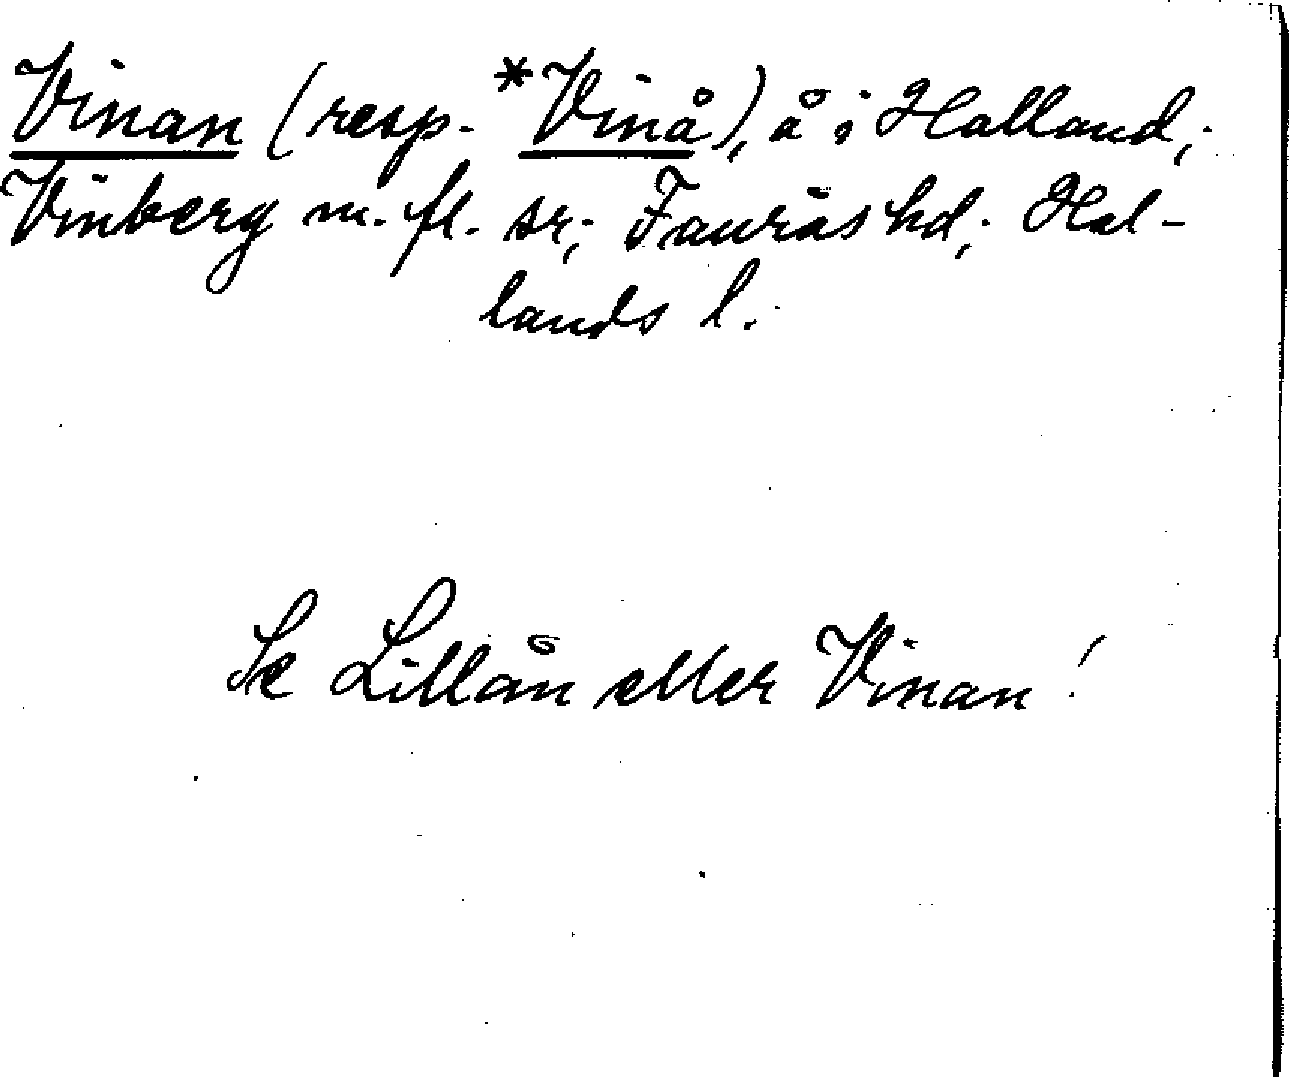 Vinan (resp. *Vinå), å i Halland,
Vinberg m. fl. sr, Faurås hd, Hal-
lands l.
Se Lillån eller Vinan!